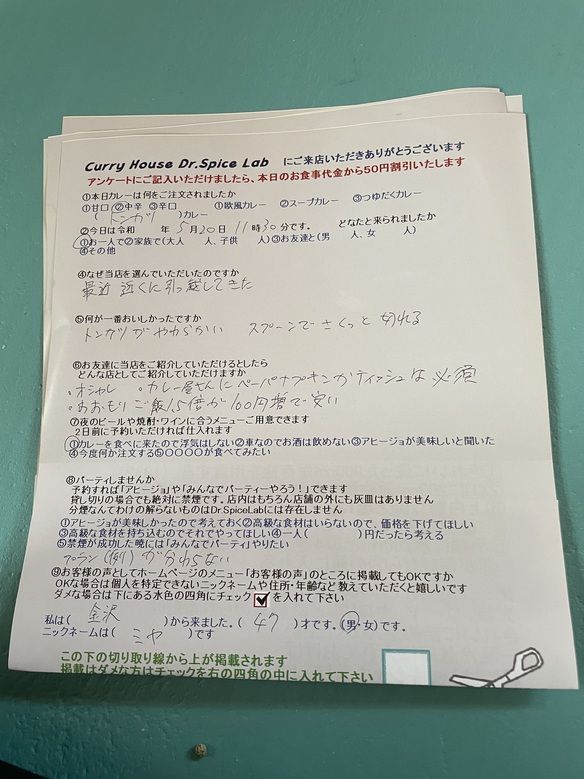 Curry House Dr.Spice Lab にご来店いただきありがとうございます
アンケートにご記入いただけましたら、本日のお食事代金から50円割引いたします
①本日カレーは何をご注文されましたか
①甘口 ②中辛 ③辛口 ①欧風カレー ②スープカレー ③つゆだくカレー
( トンカツ )カレー
②今日は令和 年 5月20日 11時30分です。 どなたと来られましたか
①お一人で②家族で(大人 人、子供 人)③お友達と(男 人、女 人)
④その他
④なぜ当店を選んでいただいたのですか
最近 近くに引っ越してきた
⑤何が一番おいしかったですか
トンカツがやわらかい スプーンでさくっと切れる
⑥お友達に当店をご紹介していただけるとしたら
どんな店としてご紹介していただけますか
・オシャレ ・カレー屋さんにペーパーナプキンかティッシュは必須
・おおもりご飯1.5倍が100円増で安い
⑦夜のビールや焼酎・ワインに合うメニューご用意できます
2日前に予約いただければ仕入れます
①カレーを食べに来たので浮気はしない②車なのでお酒は飲めない③アヒージョが美味しいと聞いた
④今度何か注文する⑤〇〇〇〇が食べてみたい
⑧パーティしませんか
予約すれば「アヒージョ」や「みんなでパーティーやろう!」できます
貸し切りの場合でも絶対に禁煙です。店内はもちろん店舗の外にも灰皿はありません
分煙なんてわけの解らないものはDr.SpiceLabには存在しません
①アヒージョが美味しかったので考えておく②高級な食材はいらないので、価格を下げてほしい
③高級な食材を持ち込むのでそれでやってほしい④一人( )円だったら考える
⑤禁煙が成功した暁には「みんなでパーティ」やりたい
プラン(例)がわからない
⑨お客様の声としてホームページのメニュー「お客様の声」のところに掲載してもOKですか
OKな場合は個人を特定できないニックネームや住所・年齢など教えていただくと嬉しいです
ダメな場合は下にある水色の四角にチェック を入れて下さい
私は( 金沢 )から来ました。( 47 )才です。(男・女)です。
ニックネームは( ミヤ )です
この下の切り取り線から上が掲載されます
掲載はダメな方はチェックを右の四角の中に入れて下さい